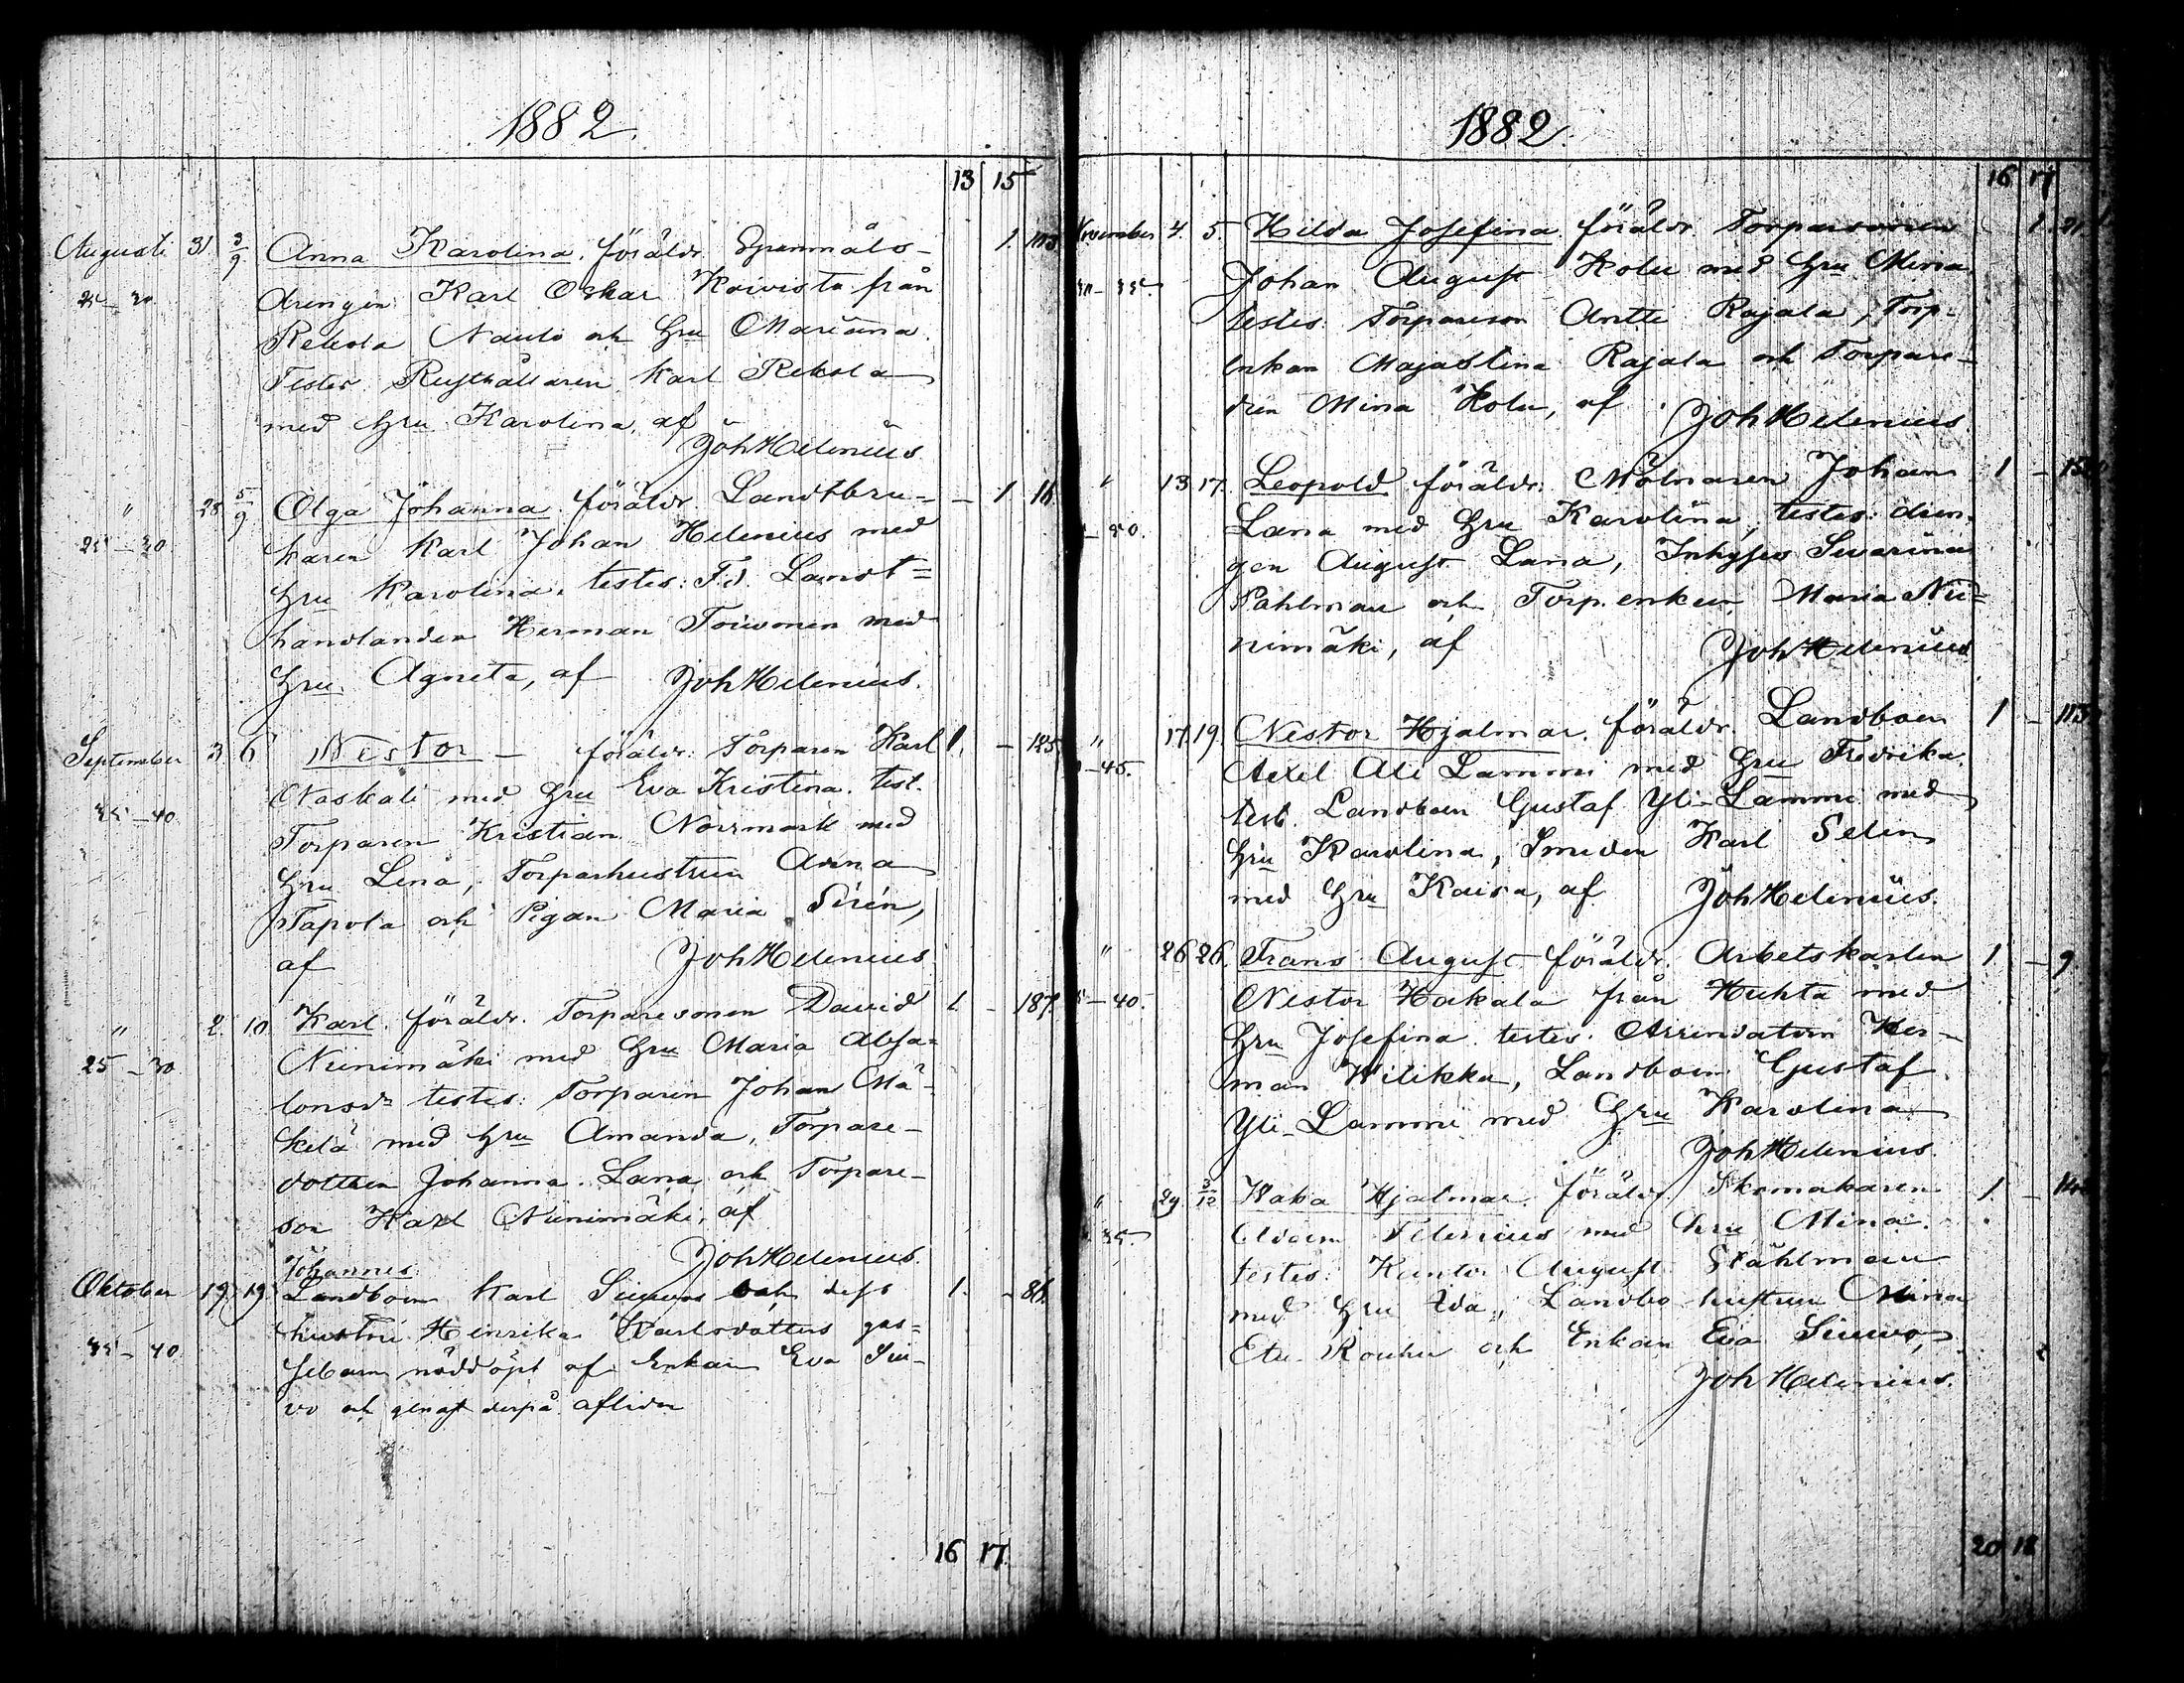 1882.
13 15
Augusti 31 3/9 Anna Karolina. föräldr. Spanmåls- 1. 113
25-30 drengen Karl Oskar Koivisto från
Rekola Nauti och Hru Marianna.
Testes. Rusthållaren Karl Rekola
med Hru Karolina, af
Joh Helenius
" 28 5/9 Olga Johanna. föräldr. Landtbru- - 1 18.
25-30 karen Karl Johan Helenius med
Hru Karolina. testes: F.d. Landt-
handlanden Herman Toivonen med
Hru Agneta, af Joh Helenius.
September 3. 6 Nestor - föräldr: Torparen Karl 1. - 125
35-40 Naskali med Hru Eva Kristina. test.
Torparen Kristian Norrmark med
Hru Lena, Torparhustrun Anna
Tapola och Pigan Maria Sirén,
af Joh Helenius
" 2. 10 Karl. föräldr. Torparesonen David 1. - 187.
25-30 Niinimäki med Hru Maria Absa-
lonsdr testes: Torparen Johan Mä-
kelä med Hru Amanda, Torpare-
dottren Johanna Lana och Torpare-
son Karl Niinimäki, af
Joh Helenius.
Johannes.
Oktober 19 19 Landboen Karl Siuvos och dess 1. - 86.
35-40 hustru Henrika Karlsdotters gos-
sebarn nöddöpt af Enkan Eva Siu-
vo och genast derpå afliden
16 17.
1882.
16 17
November 4. 5. Hilda Josefina. föräldr. Torparsonen 1. 21
30-35. Johan August Kolu med Hru Mina.
testes. Torpareson Antti Rajala, Torp.
enkan Majastina Rajala och Torpare-
dren Mina Kolu, af Joh Helenius
" 13 17. Leopold föräldr. Mölnaren Johan 1 -
Lana med Hru Karolina, testes: dren-
gen August Lana, Inhyses Sevarina
Påhlman och Torp.enkan Maria Nii-
nimäki, af Joh Helenius
" 17 19. Nestor Hjalmar. föräldr. Landboen 1 - 113
-45. Axel Ali Lammi med Hru Fredrika.
test. Landboen Gustaf Yli-Lammi med
Hru Karolina, Smeden Karl Selin
med Hru Kaisa, af Joh Helenius.
" 26 26. Frans August föräldr. Arbetskarlen 1. - 9
-40. Nestor Hakala från Huhta med
Hru Josefina. testes. Arrendatorn Her-
man Wilikka, Landboen Gustaf
Yli-Lammi med Hru Karolina
Joh Helenius.
" 29. 3/12 Kaka Hjalmar. föräldr. Skomakaren 1. -
35. Adam Felenius med Hru Mina.
testes: Kantor August Ståhlman
med Hru Ida, Landbo hustrun Mina
Etu-Rouhu och Enkan Eva Siuvo,
Joh Helenius.
20 18